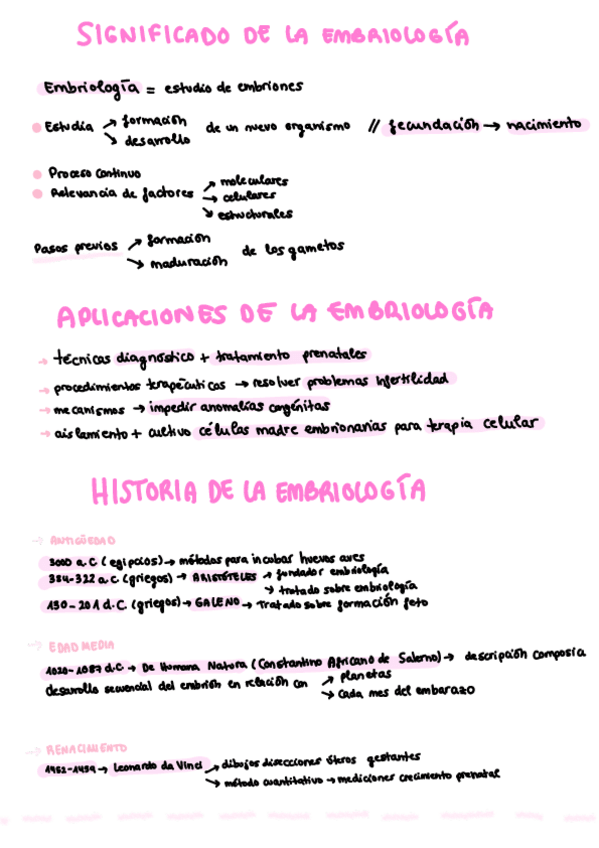 SIGNIFICADO DE LA EMBRIOLOGÍA
Embriología = estudio de embriones
Estudia → formación
↘ desarrollo
de un nuevo organismo // fecundación → nacimiento
Proceso continuo
Relevancia de factores → moleculares
→ celulares
↘ estructurales
Pasos previos → formación
→ maduración
de los gametos
APLICACIONES DE LA EMBRIOLOGÍA
→ técnicas diagnóstico + tratamiento prenatales
→ procedimientos terapeúticos → resolver problemas infertilidad
→ mecanismos → impedir anomalías congénitas
→ aislamiento + cultivo células madre embrionarias para terapia celular
HISTORIA DE LA EMBRIOLOGÍA
→ ANTIGÜEDAD
3000 a.C (egipcios) → métodos para incubar huevos aves
384-322 a.C (griegos) → ARISTÓTELES → fundador embriología
→ tratado sobre embriología
130-201 d.C. (griegos) → GALENO → Tratado sobre formación feto
→ EDAD MEDIA
1020-1087 d.C → De Humana Natura (Constantino Africano de Salerno) → descripción composia
desarrollo secuencial del embrión en relación con → planetas
→ cada mes del embarazo
→ RENACIMIENTO
→ Leonardo da Vinci → dibujos disecciones úteros gestantes
→ método cuantitativo → mediciones crecimiento prenatal